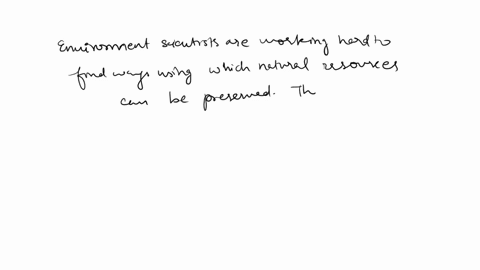 Environment scientists are working hard to
find ways using which natural resources
can be preserved. Th